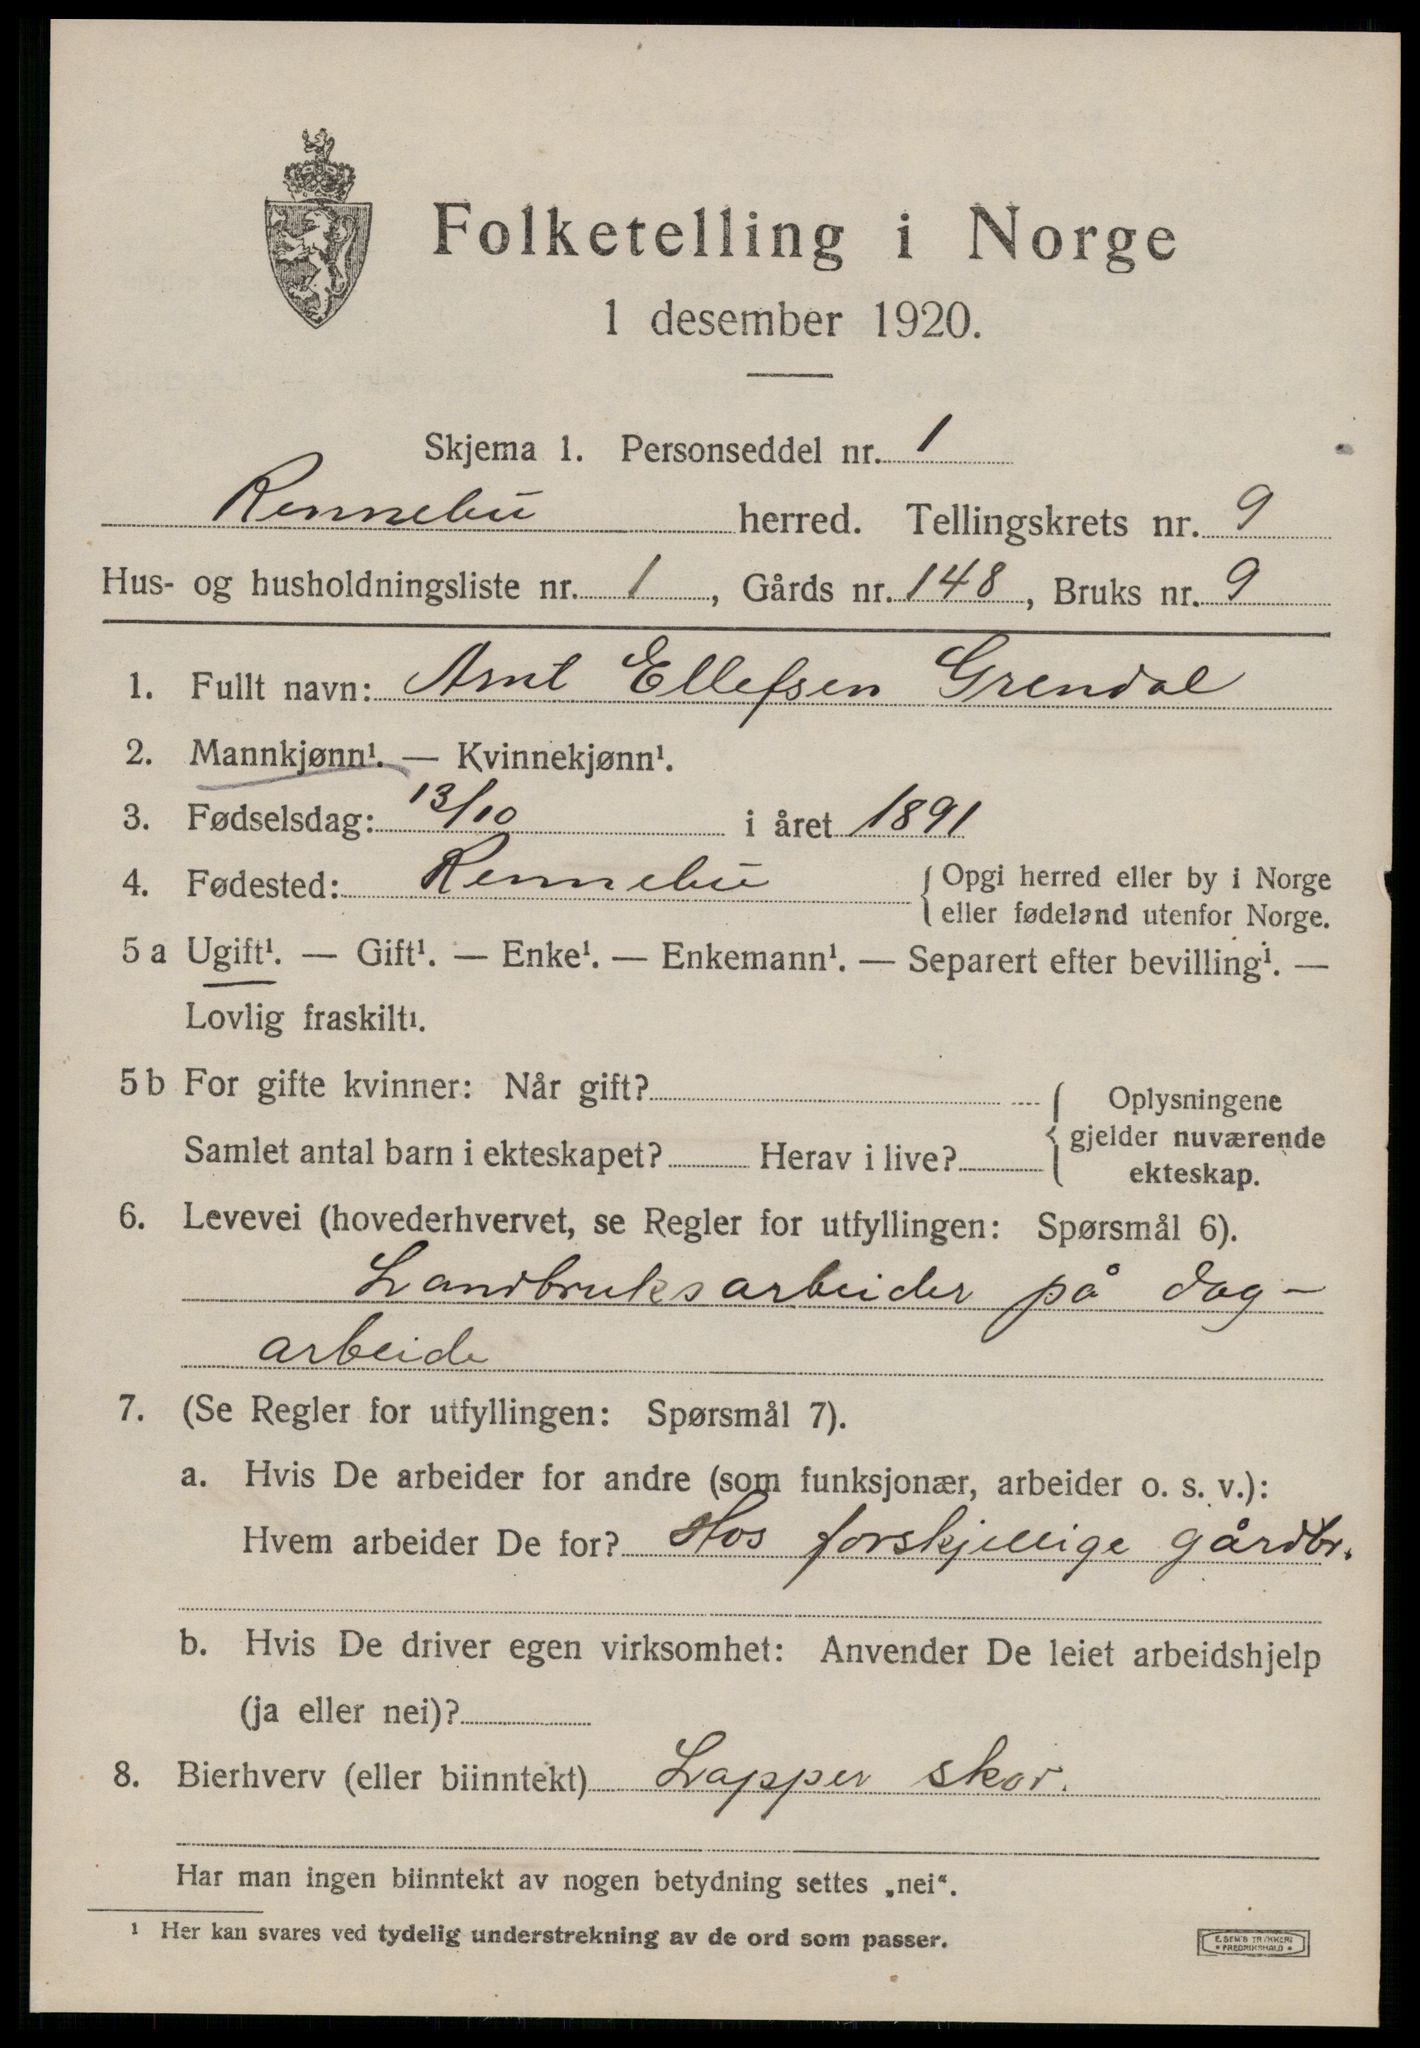 Folketelling i Norge
1 desember 1920.
Skjema 1. Personseddel nr. 1
Rennebu herred. Tellingskrets nr. 9
Hus- og husholdningsliste nr. 1, Gårds nr. 148, Bruks nr. 9
1. Fullt navn: Arnt Ellefsen Grendal
2. Mannkjønn¹. — Kvinnekjønn¹.
3. Fødselsdag: 13/10 i året 1891
4. Fødested: Rennebu { Opgi herred eller by i Norge
eller fødeland utenfor Norge.
5 a Ugift¹. — Gift¹. — Enke¹. — Enkemann¹. — Separert efter bevilling¹. —
Lovlig fraskilt¹.
5 b For gifte kvinner: Når gift? { Oplysningene
gjelder nuværende
Samlet antal barn i ekteskapet? Herav i live?
ekteskap.
6. Levevei (hovederhvervet, se Regler for utfyllingen: Spørsmål 6).
Landbruksarbeider på dag-
arbeide
7. (Se Regler for utfyllingen: Spørsmål 7).
a. Hvis De arbeider for andre (som funksjonær, arbeider o. s. v.):
Hvem arbeider De for? Hos forskjellige gårdbr.
b. Hvis De driver egen virksomhet: Anvender De leiet arbeidshjelp
(ja eller nei)?
8. Bierhverv (eller biinntekt) Lapper skor.
Har man ingen biinntekt av nogen betydning settes „nei“.
¹ Her kan svares ved tydelig understrekning av de ord som passer.
E. SEM'S TRYKKERI
• FREDRIKSHALD •